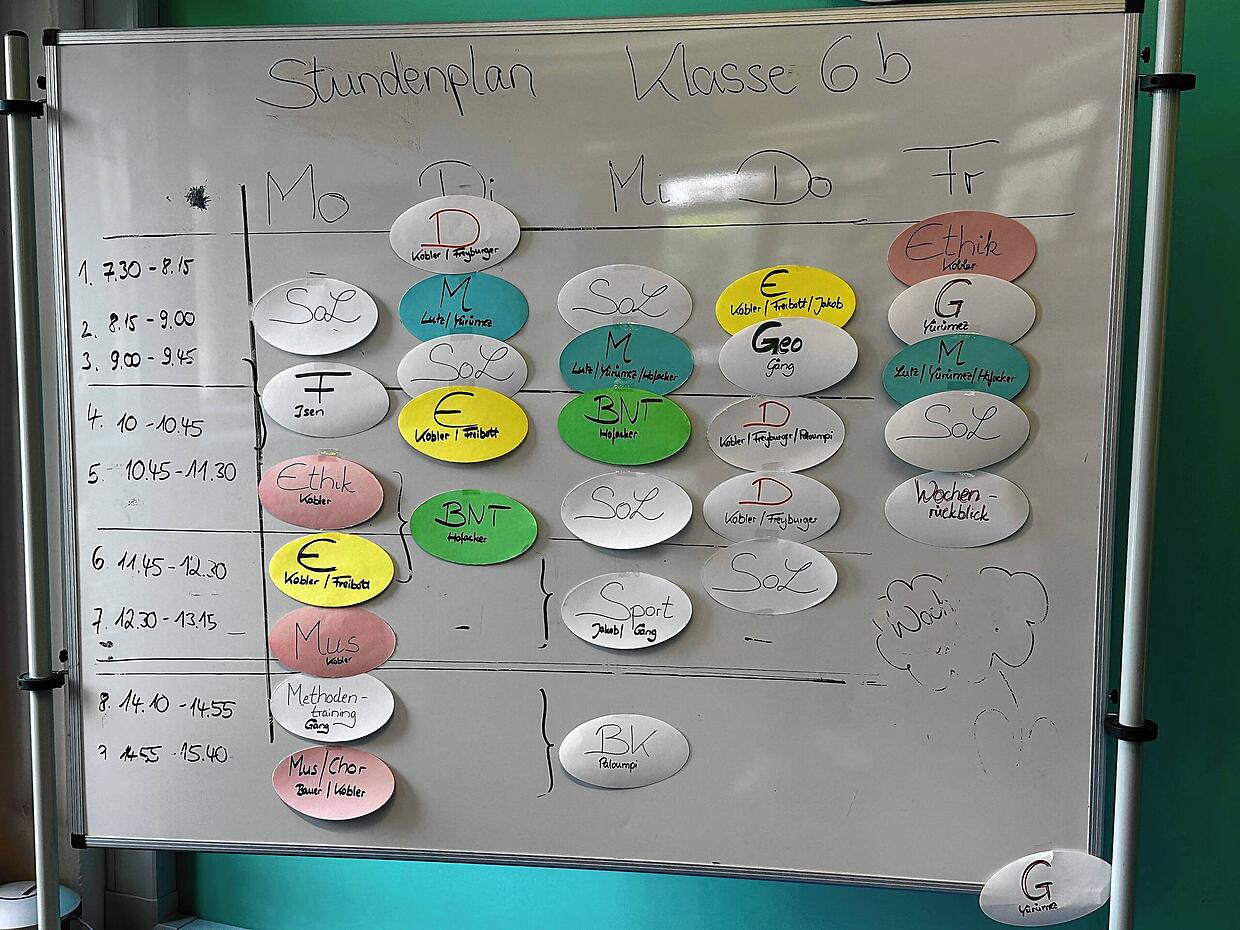 Stundenplan Klasse 6b
Mo Di Mi Do Fr
1. 7.30 - 8.15
2. 8.15 - 9.00
3. 9.00 - 9.45
4. 10 - 10.45
5. 10.45 - 11.30
6 11.45 - 12.30
7. 12.30 - 13.15
8. 14.10 - 14.55
14.55 - 15.40
SoL
F
Isen
Ethik
Köbler
E
Köbler / Freibott
Mus
Köbler
Methoden-
training
Gäng
Mus/Chor
Bauer / Köbler
D
Köbler / Freyburger
M
Lutz / Yürümez
SoL
E
Köbler / Freibott
BNT
Hofacker
-
SoL
M
Lutz / Yürümez / Hofacker
BNT
Hofacker
SoL
Sport
Jakob / Gäng
BK
Paloumpi
E
Köbler / Freibott / Jakob
Geo
Gäng
D
Köbler / Freyburger / Paloumpi
D
Köbler / Freyburger
SoL
-
Ethik
Köbler
G
Yürümez
M
Lutz / Yürümez / Hofacker
SoL
Wochen-
rückblick
G
Yürümez